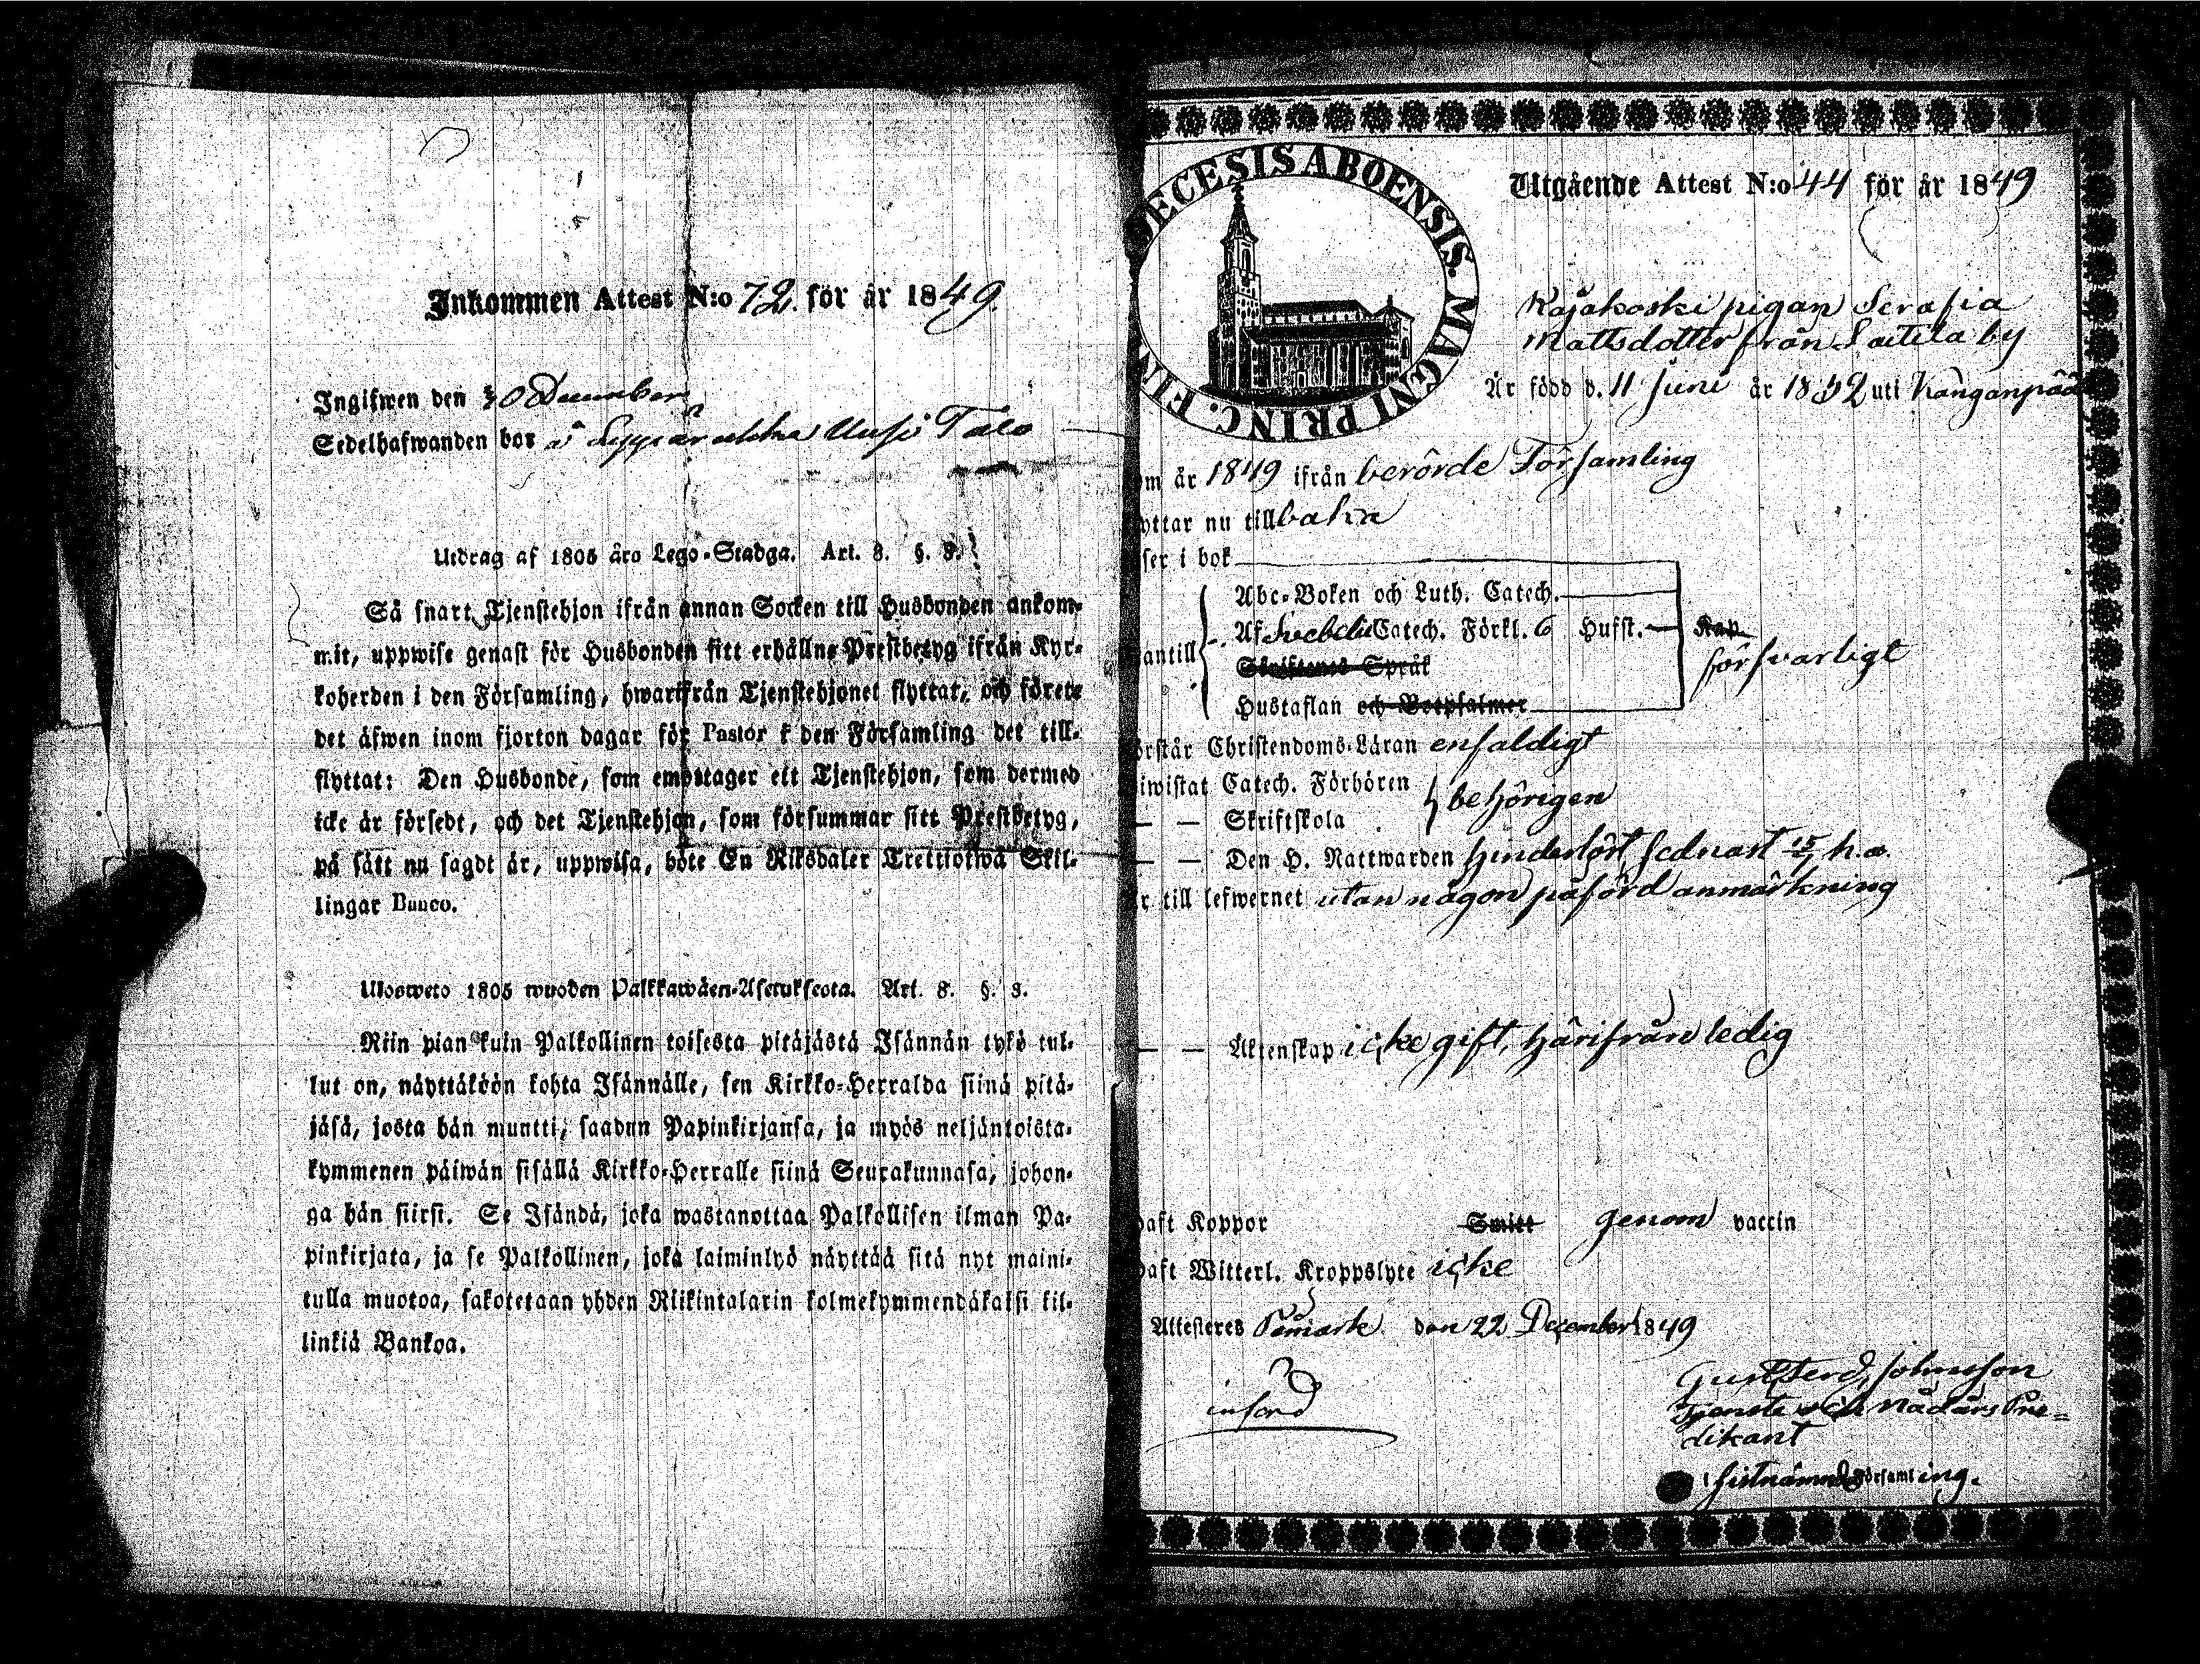 Inkommen Attest N:o 72. för år 1849.
Ingifwen den 30 December
Sedelhafwanden bor å Uusi Talo
Utdrag af 1805 års Lego-Stadga. Art. 8. §. 3.
Så snart Tjenstehjon ifrån annan Socken till Husbonden ankom-
mit, uppwise genast för Husbonden sitt erhållne Prestbetyg ifrån Kyr-
koherden i den Församling, hwarifrån Tjenstehjonet flyttat, och förete
det äfwen inom fjorton dagar för Pastor i den Församling det till-
flyttat: Den Husbonde, som emottager ett Tjenstehjon, som dermed
icke är försedt, och det Tjenstehjon, som försummar sitt Prestbetyg,
på sätt nu sagdt är, uppwisa, böte En Riksdaler Trettiotwå Skil-
lingar Banco.
Ulosweto 1805 wuoden Palkkawäen-Asetuksesta. Art. 8. §. 3.
Niin pian kuin Palkollinen toisesta pitäjästä Isännän tykö tul-
lut on, näyttäköön kohta Isännälle, sen Kirkko-Herralda siinä pitä-
jäsä, josta hän muutti, saadun Papinkirjansa, ja myös neljäntoista-
kymmenen päiwän sisällä Kirkko-Herralle siinä Seurakunnasa, johon-
ga hän siirsi. Se Isändä, joka wastanottaa Palkollisen ilman Pa-
pinkirjata, ja se Palkollinen, joka laiminlyö näyttää sitä nyt maini-
tulla muotoa, sakotetaan yhden Riikintalarin kolmekymmendäkaksi kil-
linkiä Bankoa.
DECESIS ABOENSIS. MAGNI PRINC. FIN
Utgående Attest N:o 44 för år 1849
Kajakoski pigan Serafia
Mattsdotter från Laitila by
Är född d. 11 Juni år 1832 uti Kanganpää
om år 1849 ifrån berörde Församling
yttar nu tillbaka
ser i bok
Abc-Boken och Luth. Catech.
Af Svebelii Catech. Förkl. 6 Hufst. Kap
antill
Skriftenes Språk
försvarligt
Hustaflan och Botpsalmer
örstår Christendoms-Läran enfaldigt
iwistat Catech. Förhören
behörigen
— — Skriftskola
— — Den H. Nattwarden hinderlöst, sednast 15/7 h.a.
r till lefwernet utan någon påförd anmärkning
— — Äktenskap icke gift, härifrån ledig
aft Koppor Smitt genom vaccin
aft Witterl. Kroppslyte icke
Attesteres Påmark den 22 December 1849
införd
Gust Ferd. Johnsson
Tjenste och Nådårs Pre-
dikant
i sistnämnd Församling.